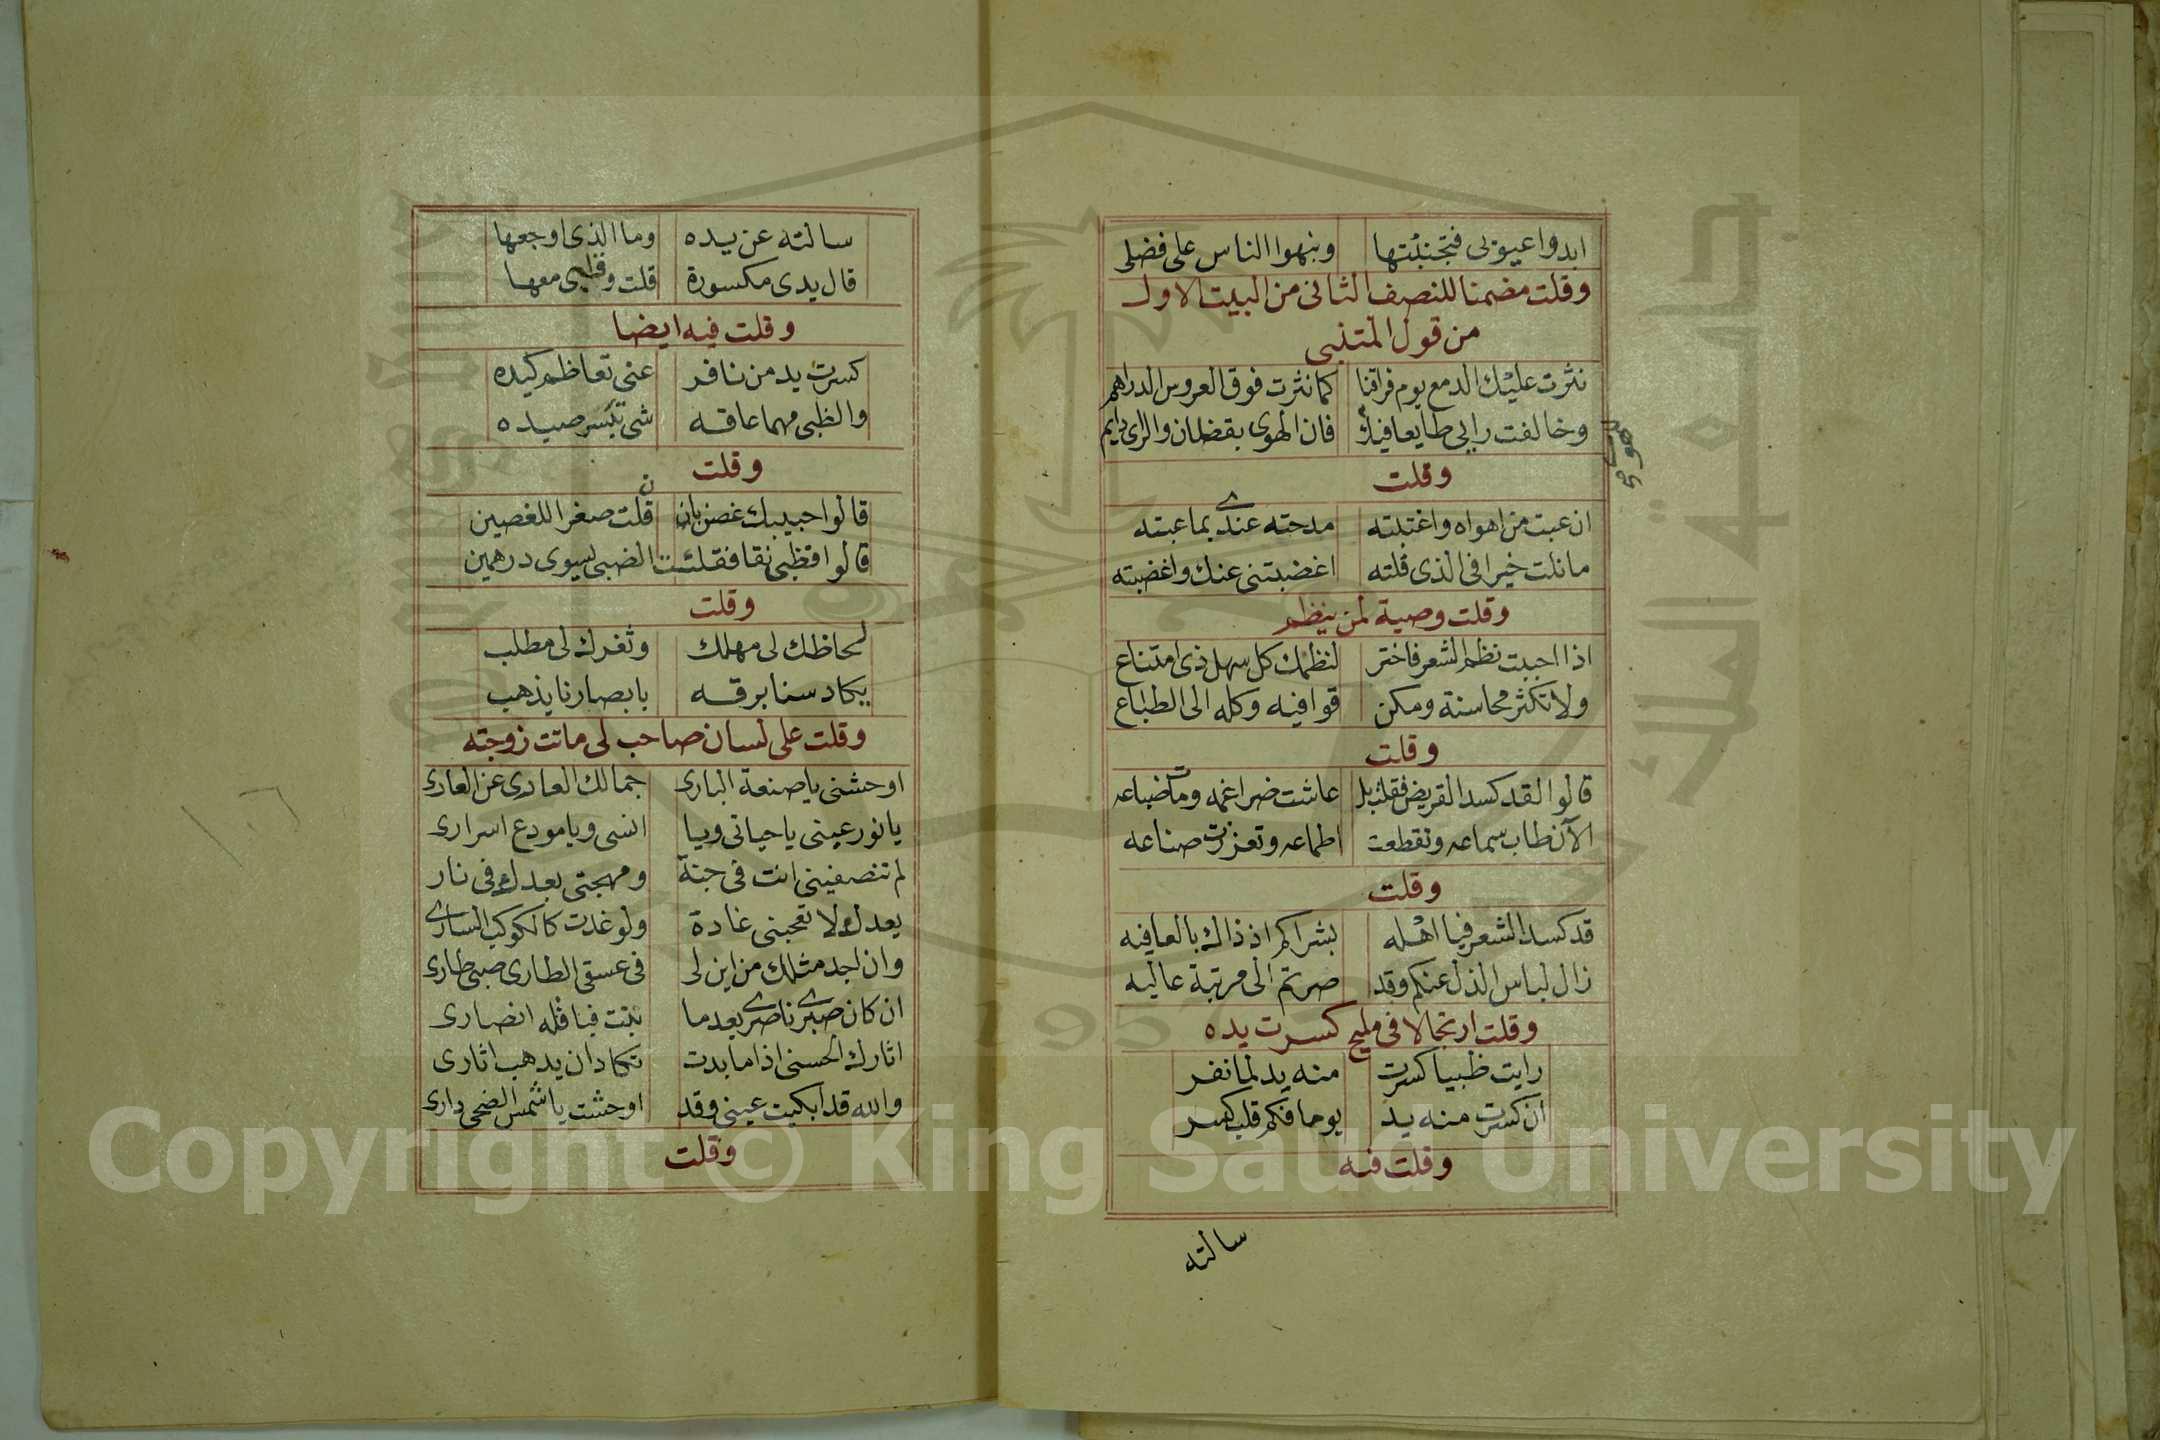 ابدوا عيوبى فتجنبتها وبنهوا الناس على فضلى
وقلت مضمنا للنصف الثانى من البيت الاول
من قول المتنبى
نثرت عليك الدمع يوم فراقنا كما نثرت فوق العروس الدراهم
وخالفت رايى طايعا فيك فان الهوى يقظان والراى نايم
الهوى
وقلت
ان عبت من اهواه واغتبته مدحته عندى بما عبته
ما نلت خيرا فى الذى قلته اغضبتنى عنك واغضبته
وقلت وصية لمن ينظم
اذا احببت نظم الشعر فاختر لنظمك كل سهل ذى امتناع
ولا تكثر محاسنة ومكن قوافيه وكله الى الطباع
وقلت
قالوا لقد كسد القريض فقلت بل عاشت ضراغمه وماضباعه
الآن طاب سماعه وتقطعت اطماعه وتعززت صناعه
وقلت
قد كسد الشعر فيا اهله بشراكم اذ ذاك بالعافيه
زال لباس الذل عنكم وقد صرتم الى مرتبة عاليه
وقلت ارتجالا فى مليح كسرت يده
رايت ظبيا كسرت منه يد لما نفر
ان كسرت منه يد يوما فكم قلب كسر
وقلت فيه
سالته
سالته عن يده وما الذى اوجعها
قال يدى مكسورة قلت وقلبى معها
وقلت فيه ايضا
كسرت يد من نافر عنى تعاظم كيده
والظبى مهما عاقه شى تيسر صيده
وقلت
قالوا حبيبك غصن بان قلت صغرا للغصين
قالوا فظبى نقا فقلت الضبى يسوى درهمين
وقلت
لحاظك لى مهلك وثغرك لى مطلب
يكاد سنا برقه بابصارنا يذهب
وقلت على لسان صاحب لى ماتت زوجته
اوحشنى يا صنعة البارى جمالك العادى عن العارى
يا نور عينى يا حياتى ويا انسى ويا مودع اسرارى
لم تنصفينى انت فى جنة ومهجتى بعدك فى نار
بعدك لا تعجبنى غادة ولو غدت كالكوكب السارى
وان اجد مثلك من اين لى فى عسقى الطارى صبى طارى
ان كان صبرى ناصرى بعد ما بنت فيا قله انصارى
اثارك الحسنى اذا ما بدت تكاد ان يدهب اثارى
والله قد ابكيت عينى وقد اوحشت يا شمس الضحى دارى
وقلت
Copyright © King Saud University
1957